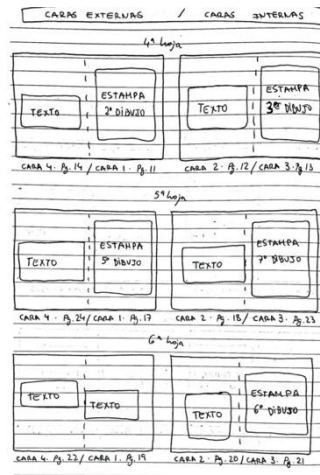 CARAS EXTERNAS / CARAS INTERNAS
4ª hoja
TEXTO
ESTAMPA
2º DIBUJO
TEXTO
ESTAMPA
3er DIBUJO
CARA 4. Pg. 14 / CARA 1. Pg. 11
CARA 2. Pg. 12 / CARA 3. Pg. 13
5ª hoja
TEXTO
ESTAMPA
5º DIBUJO
TEXTO
ESTAMPA
7º DIBUJO
CARA 4. Pg. 24 / CARA 1. Pg. 17
CARA 2. Pg. 18 / CARA 3. Pg. 23
6ª hoja
TEXTO
TEXTO
TEXTO
ESTAMPA
6º DIBUJO
CARA 4. Pg. 22 / CARA 1. Pg. 19
CARA 2. Pg. 20 / CARA 3. Pg. 21